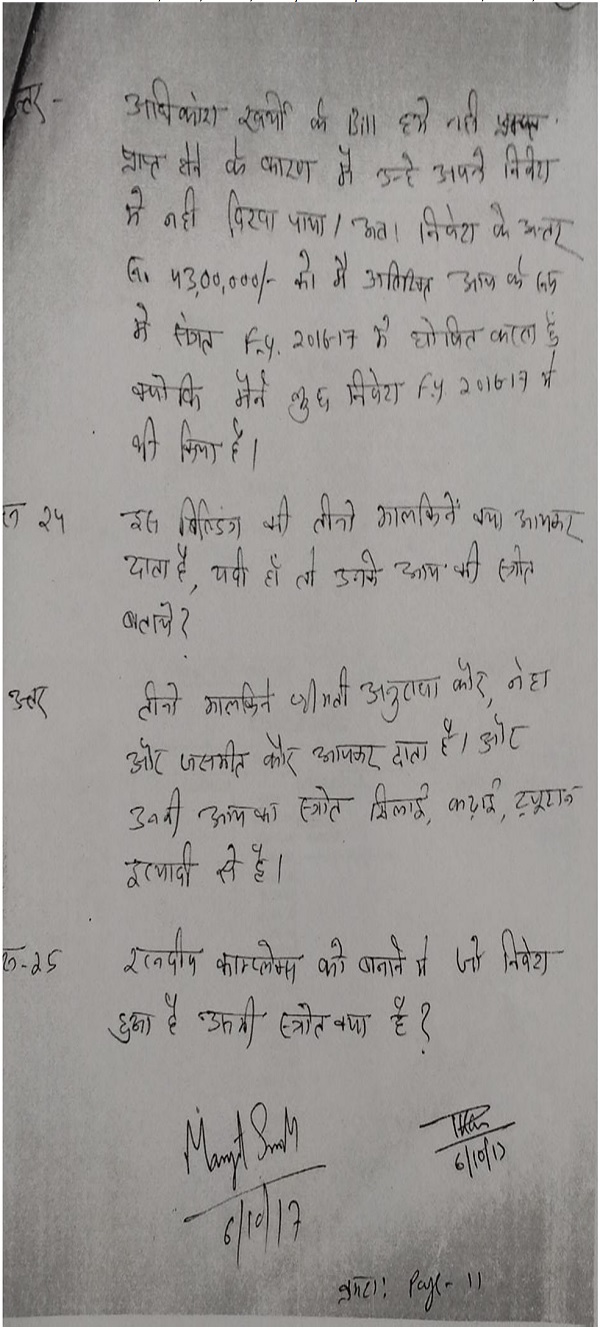 उत्तर - अधिकांश खर्चो के Bill हमे नही
प्राप्त होने के कारण मै उन्हे अपने निवेश
मे नही दिखा पाया। अतः निवेश के अन्तर
रू. 43,00,000/- को मै अतिरिक्त आय के रूप
मे संगत F.y. 2016-17 मे घोषित करता हूँ
क्योकि मैने कुछ निवेश F.y 2016-17 मे
भी किया है।
प्र 24 इस बिल्डिंग की तीनो मालकिनें क्या आयकर
दाता है, यदी हाँ तो उनके आय की स्त्रोत
बताये?
उत्तर तीनो मालकिन श्रीमती अनुराधा कौर, नेहा
और जसमीत कौर आयकर दाता है। और
उनकी आय का स्त्रोत सिलाई, कढ़ाई, ट्यूशन
इत्यादी से है।
प्र-25 रत्नदीप काम्प्लेक्स को बनाने मे जो निवेश
हुआ है उसकी स्त्रोत क्या है?
Manjit Singh
6/10/17
6/10/17
क्रमशः Page - 11